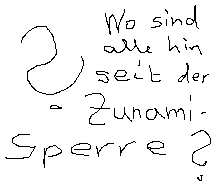 ? Wo sind
alle hin
seit der
Zunami-
Sperre?